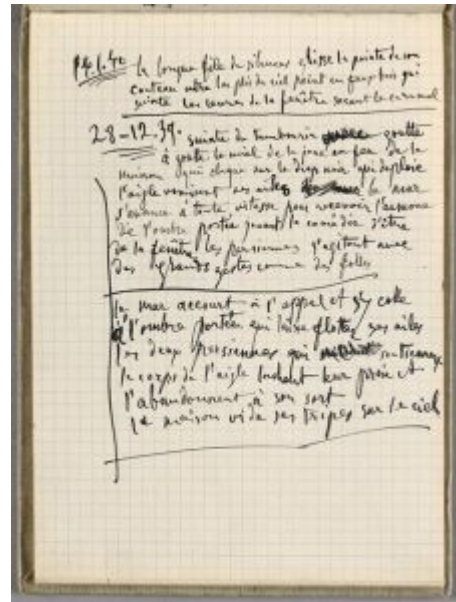 14.1.40 la longue fille du silence glisse la pointe de son
couteau entre les plis du ciel peint en faux bois qui
suinte les de la fenêtre
28-12.39. suinte du tambourin goutte
à goutte le miel de la joue en feu de la
maison qui cligne sur le drap noir qui déploie
l'aigle ses ailes la mer
s'avance à toute vitesse pour recevoir l'aumone
de l'ombre portée jouant la comédie d'être
de la fenêtre les persiennes s'agitent avec
des grands gestes comme des folles
la mer accourt à l'appel et s'y colle
à l'ombre portée qui laisse flotter ses ailes
les deux persiennes qui
le corps de l'aigle lachent leur proie et
l'abandonnent à son sort
la maison vide ses tripes sur le ciel